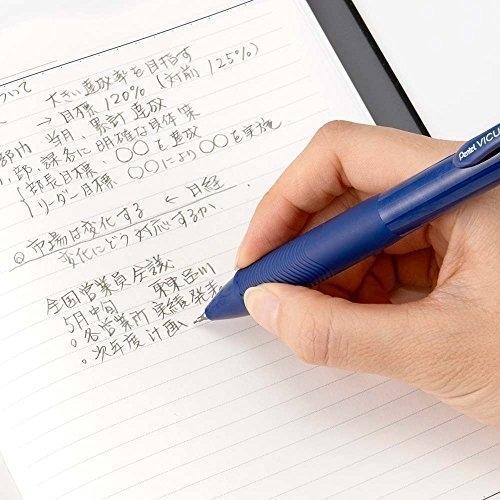 ついて
大きい達成率を目指す
→ 目標 120% (対前 125%)
部内 当月、累計 達成
部、課名に明確な具体策
部長目標、〇〇を達成
リーダー目標 〇〇により〇〇を実施
◎市場は変化する ← 日経
変化にどう対応するか、
全国営業員会議
5月中旬 東京品川
。各営業所 実績発表
。次年度計画
Pentel VICU